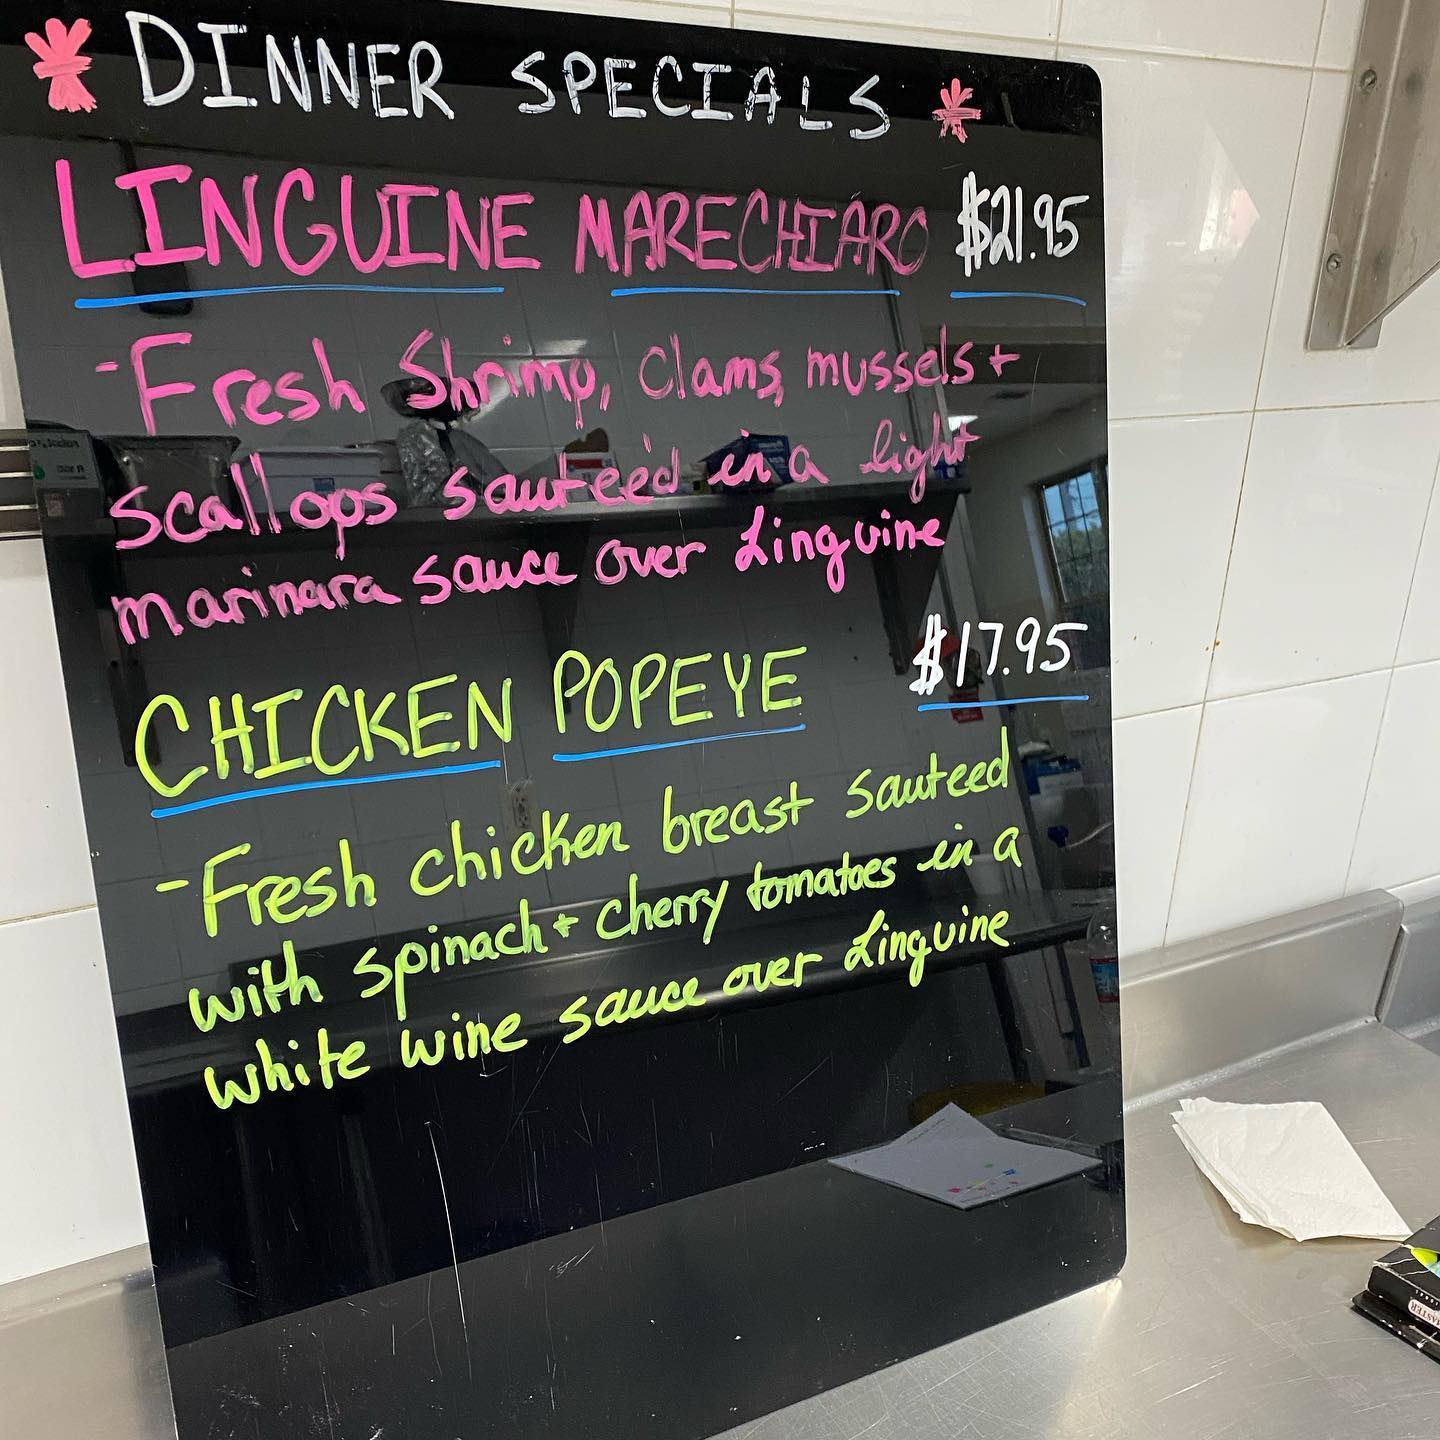 DINNER SPECIALS
LINGUINE MARECHIARO $21.95
-Fresh Shrimp, clams, mussels +
scallops sauteed in a light
marinara sauce over Linguine
CHICKEN POPEYE $17.95
-Fresh chicken breast sauteed
with spinach + cherry tomatoes in a
white wine sauce over Linguine